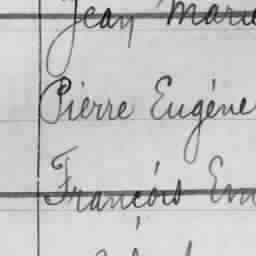 Jean Marie
Pierre Eugène
François